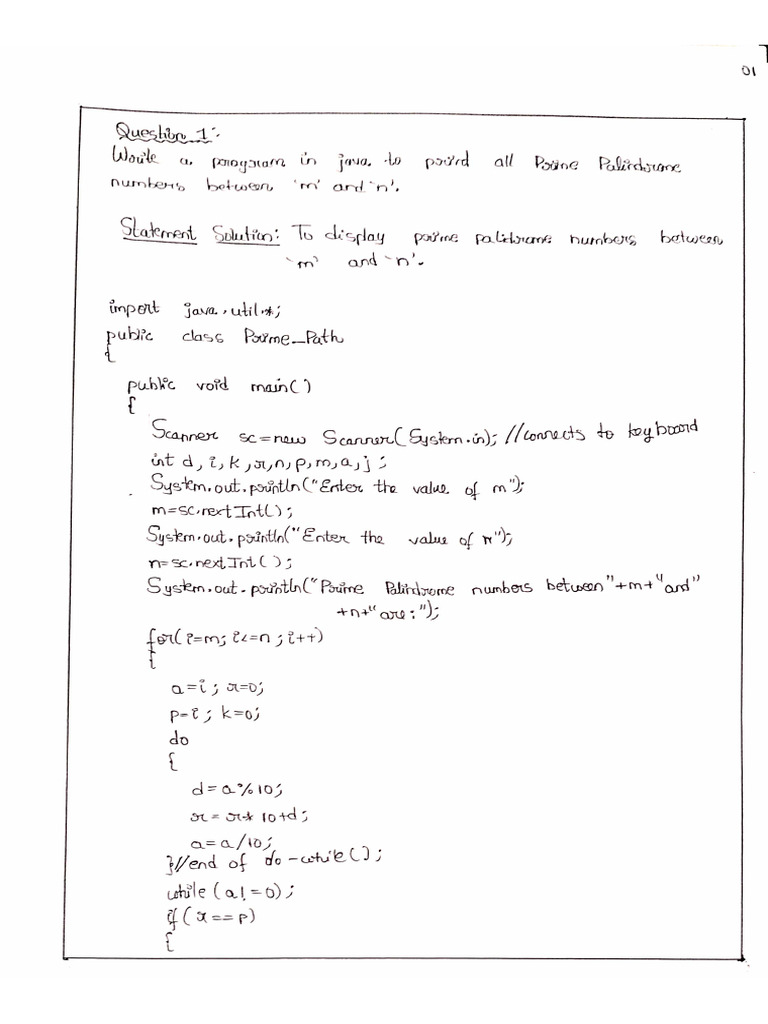 01
Question 1:
Write a program in java to print all Prime Palindrome
numbers between 'm' and 'n'.
Statement Solution: To display prime palidrome numbers between
'm' and 'n'.
import java.util.*;
public class Prime_Path
{
public void main()
{
Scanner sc=new Scanner(System.in); //connects to keyboard
int d, i, k, r, n, p, m, a, j;
System.out.println("Enter the value of m");
m=sc.nextInt();
System.out.println("Enter the value of n");
n=sc.nextInt();
System.out.println("Prime Palindrome numbers between"+m+"and"
+n+"are:");
for(i=m; i<=n; i++)
{
a=i; r=0;
p=i; k=0;
do
{
d=a%10;
r=r*10+d;
a=a/10;
}//end of do-while();
while(a!=0);
if(r==p)
{